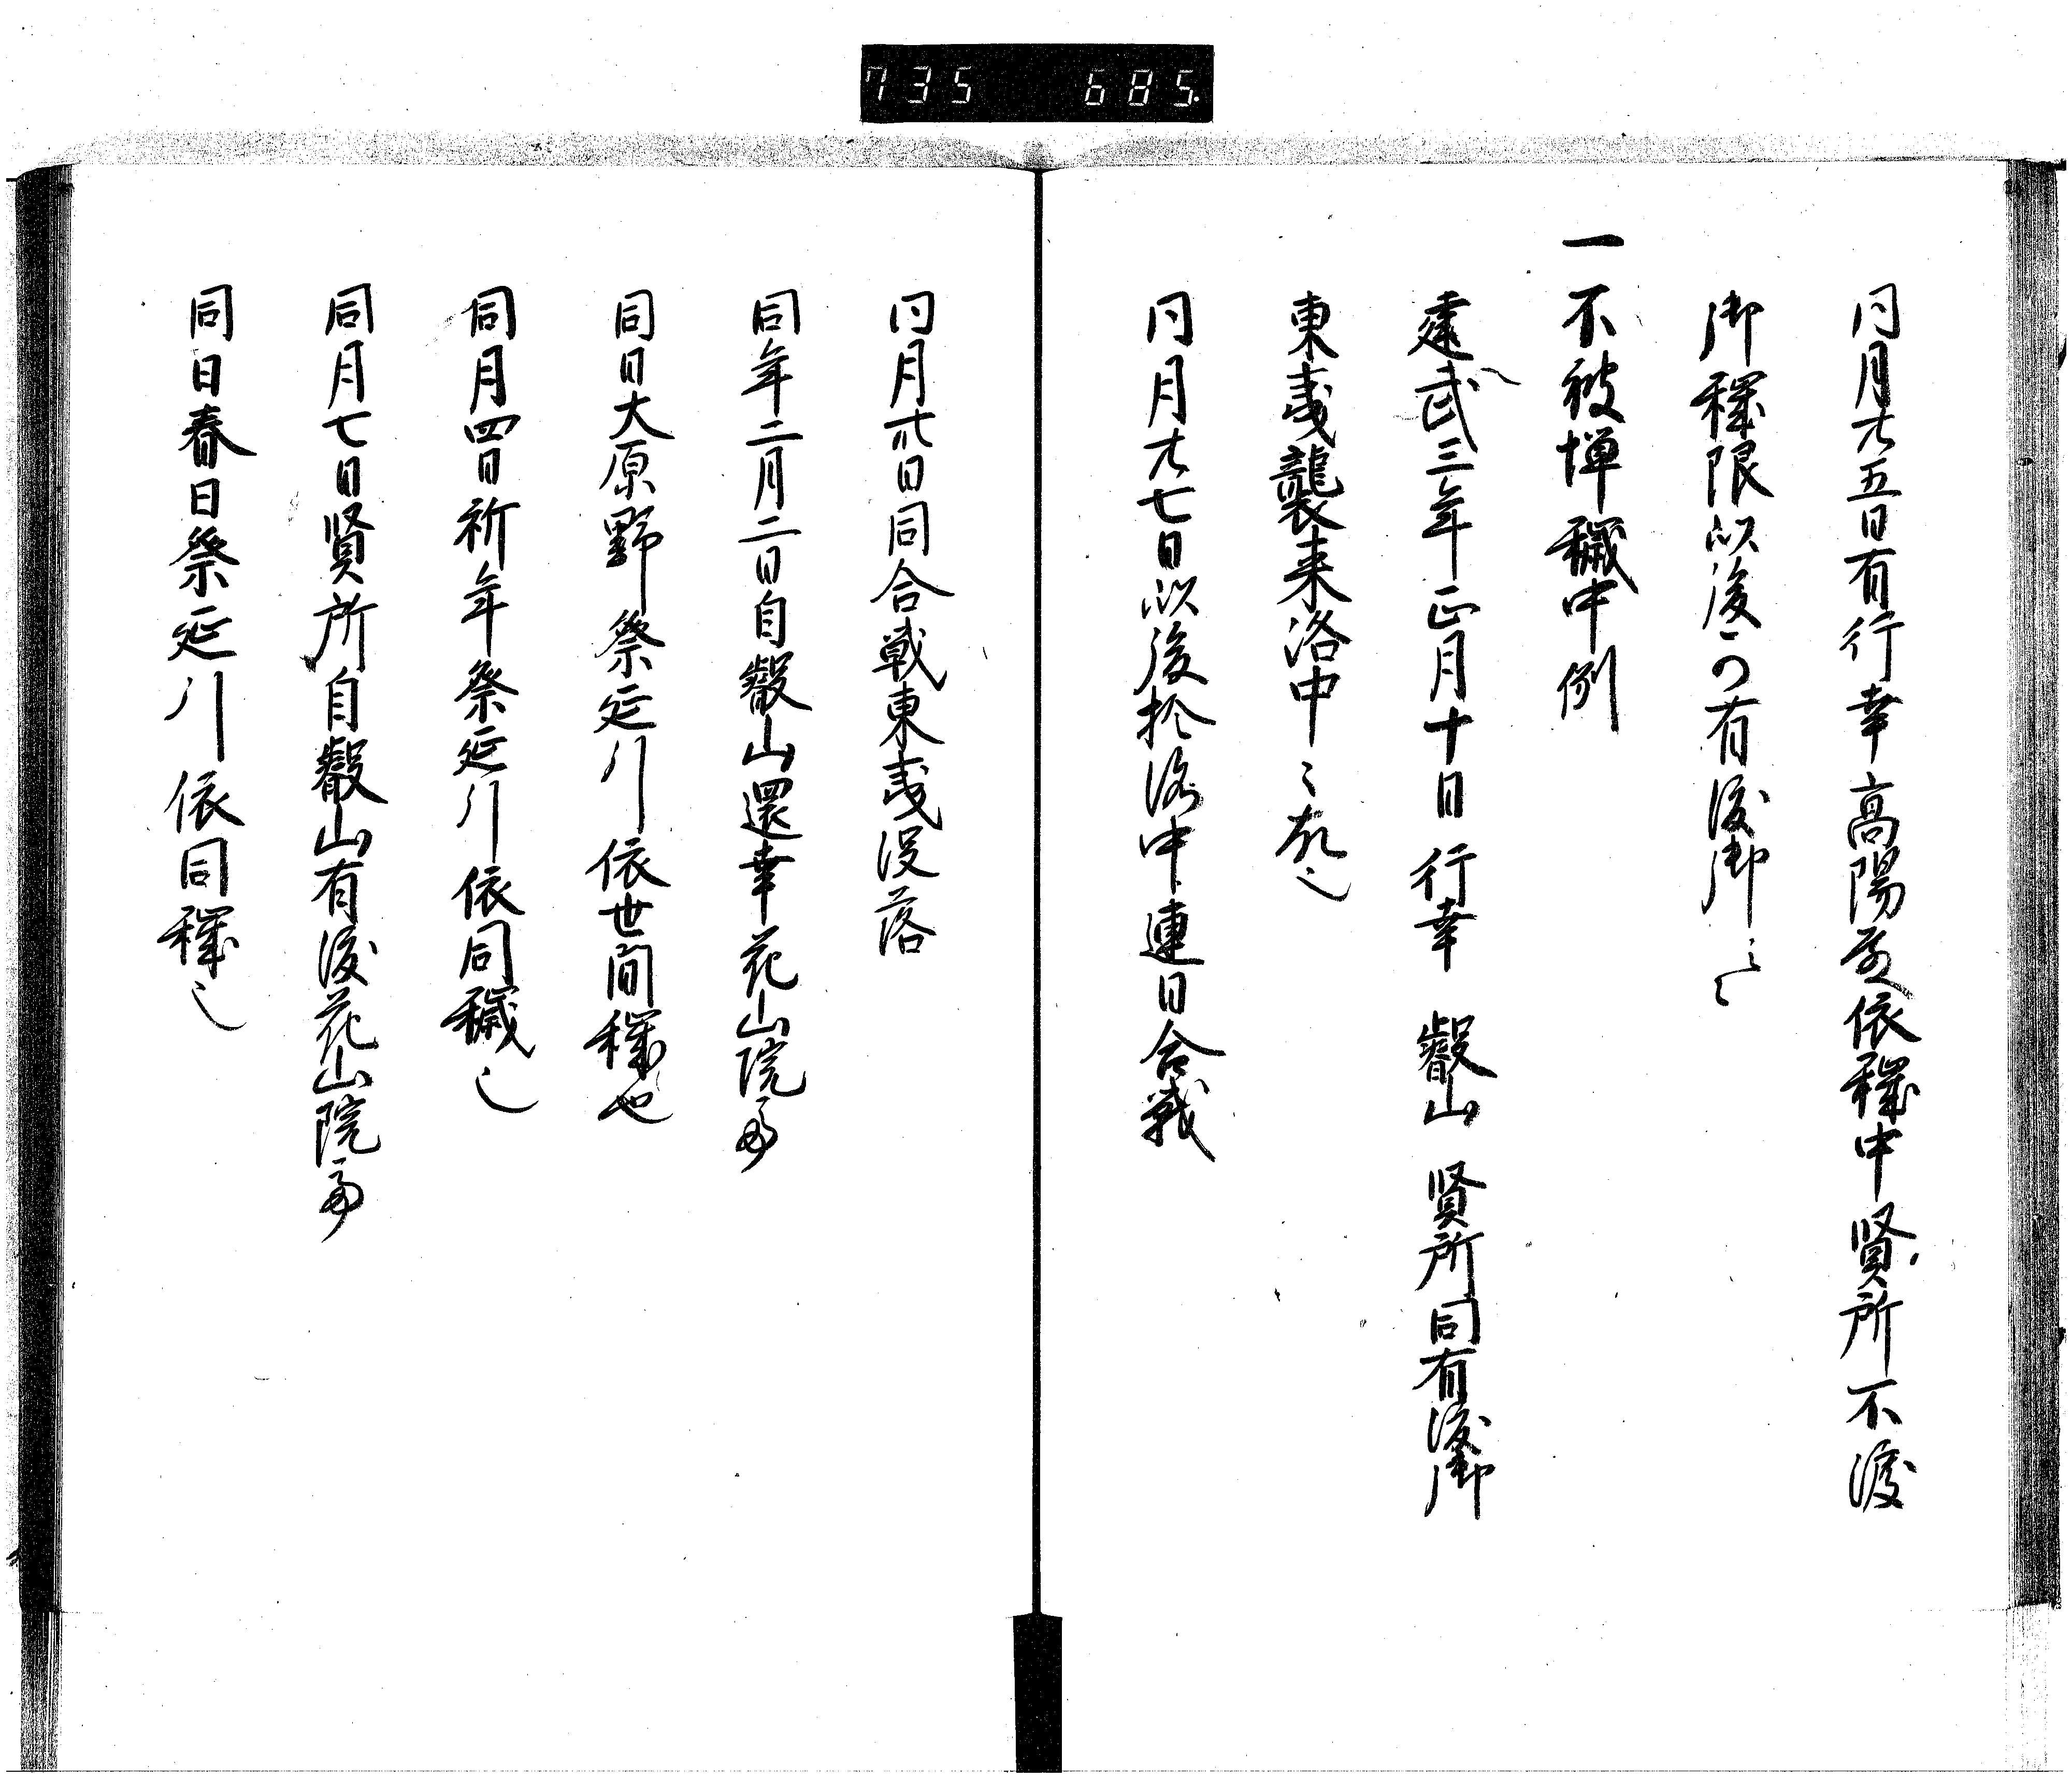 735 685
同月廿五日有行幸高陽院依穢中賢所不渡
御穢限以後可有渡御云々
一不被憚穢中例
建武三年正月十日行幸叡山賢所同有渡御
東夷襲来洛中之故也
同月廿七日以後於洛中連日合戦
同月卅日同合戦東夷没落
同年二月二日自叡山還幸花山院亭
同日大原野祭延引依世間穢也
同月四日祈年祭延引依同穢也
同月七日賢所自叡山有渡花山院亭
同日春日祭延引依同穢也